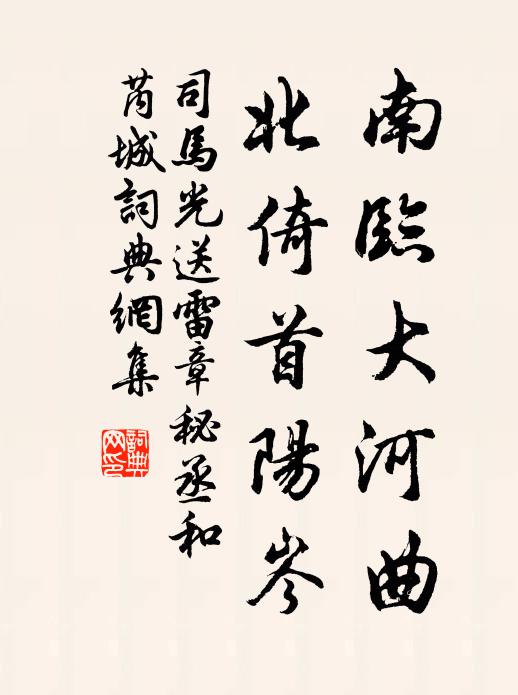 南臨大河曲
北倚首陽岑
司馬光送雷章秘丞和
芮城詞典網集
詞典網印